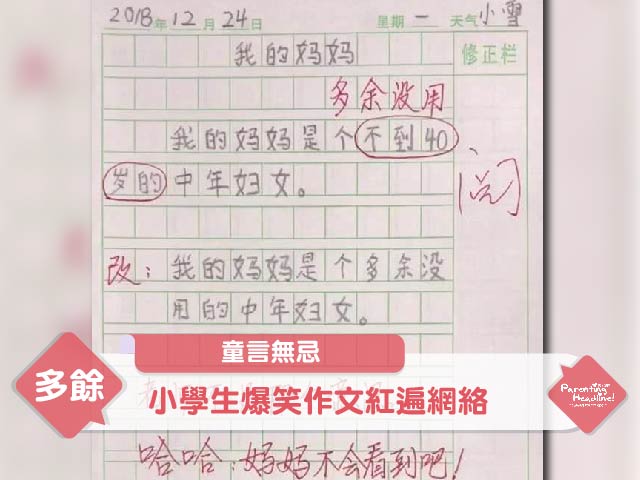 2018年12月24日 星期一 天气小雪
我的妈妈
修正栏
多余没用
我的妈妈是个不到40、
岁的中年妇女。
阅
改：我的妈妈是个多余没
用的中年妇女。
童言無忌
多餘
小學生爆笑作文紅遍網絡
Parenting
Headline!
哈哈，妈妈不会看到吧！